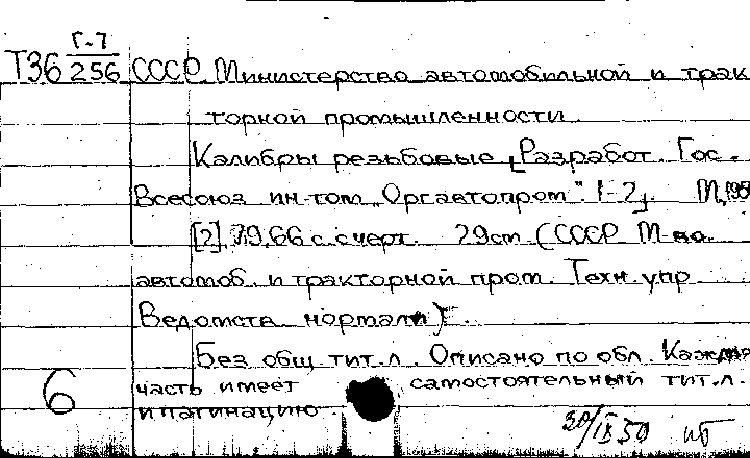 Г-7
Т36 256 СССР Министерство автомобильной и трак
торной промышленности
Калибры резьбовые [Разработ. Гос.
Всесоюз ин-том „Оргавтопром". 1-2]. М, 195
[2], 79, 66 с. с черт. 29 см (СССР М-во.
автомоб. и тракторной пром. Техн. упр
Ведомств. нормали)
Без общ. тит. л. Описано по обл. Каждая
часть имеет самостоятельный тит. л.
и пагинацию.
6
30/IX 50